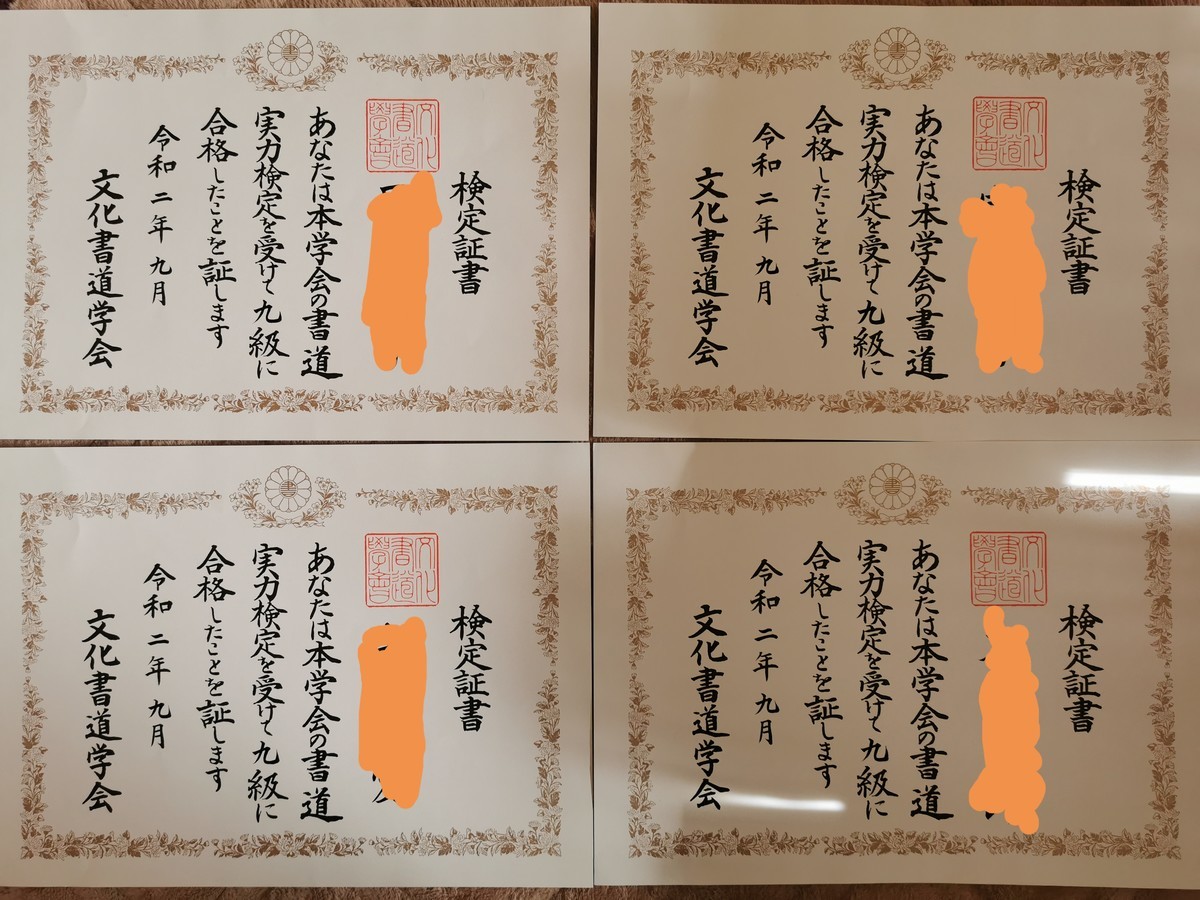 検定証書
文化
書道
學會
あなたは本学会の書道
実力検定を受けて九級に
合格したことを証します
令和二年九月
文化書道学会
検定証書
文化
書道
學會
あなたは本学会の書道
実力検定を受けて九級に
合格したことを証します
令和二年九月
文化書道学会
検定証書
文化
書道
學會
あなたは本学会の書道
実力検定を受けて九級に
合格したことを証します
令和二年九月
文化書道学会
検定証書
文化
書道
學會
あなたは本学会の書道
実力検定を受けて九級に
合格したことを証します
令和二年九月
文化書道学会